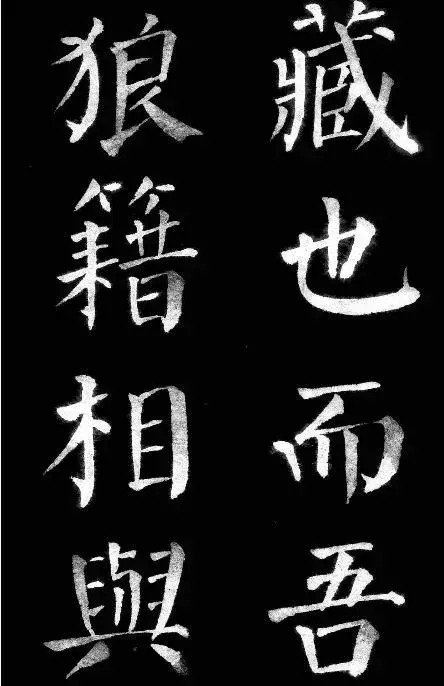 藏也而吾
狼籍相與